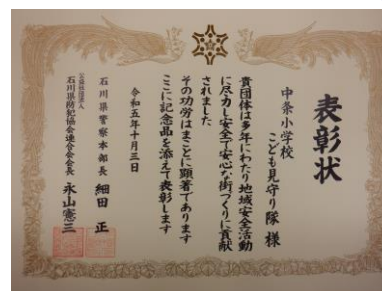 表彰状
中条小学校
こども見守り隊 様
貴団体は多年にわたり地域安全活動
に尽力し安全で安心な街づくりに貢献
されました
その功労はまことに顕著であります
ここに記念品を添えて表彰します
令和五年十月三日
石川県警察本部長 細田 正
公益社団法人
石川県防犯協会連合会会長 永山憲三